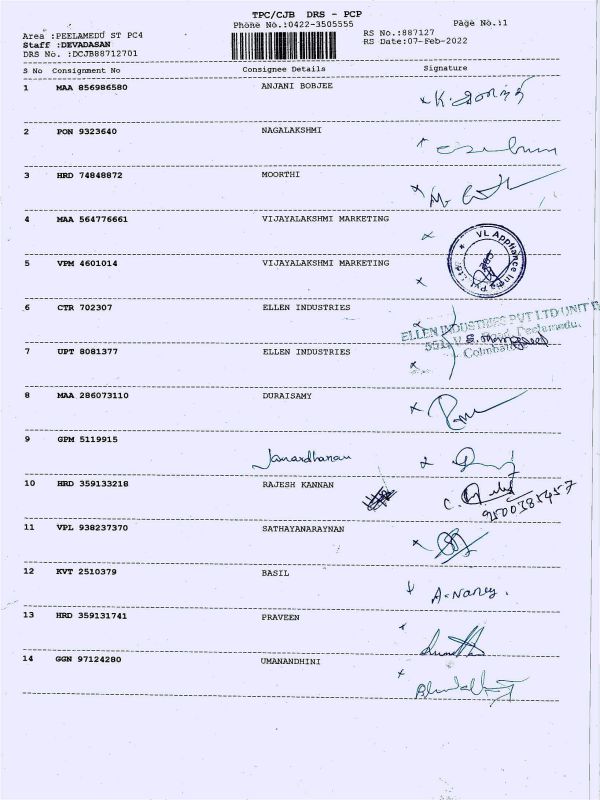 TPC/CJB DRS - PCP
Phone No.:0422-3505555
Page No.:1
Area :PEELAMEDU ST PC4
Staff :DEVADASAN
DRS No. :DCJB88712701
RS No.:887127
RS Date:07-Feb-2022
S No Consignment No Consignee Details Signature
1 MAA 856986580 ANJANI BOBJEE
2 PON 9323640 NAGALAKSHMI
3 HRD 74848872 MOORTHI
4 MAA 564776661 VIJAYALAKSHMI MARKETING
VL Appliance India Pvt Ltd
5 VPM 4601014 VIJAYALAKSHMI MARKETING
6 CTR 702307 ELLEN INDUSTRIES
ELLEN INDUSTRIES PVT LTD UNIT
551, Peelamedu.
7 UPT 8081377 ELLEN INDUSTRIES
8 MAA 286073110 DURAISAMY
9 GPM 5119915 Janardhanan
10 HRD 359133218 RAJESH KANNAN
9500385457
11 VPL 938237370 SATHAYANARAYNAN
12 KVT 2510379 BASIL
13 HRD 359131741 PRAVEEN
14 GGN 97124280 UMANANDHINI